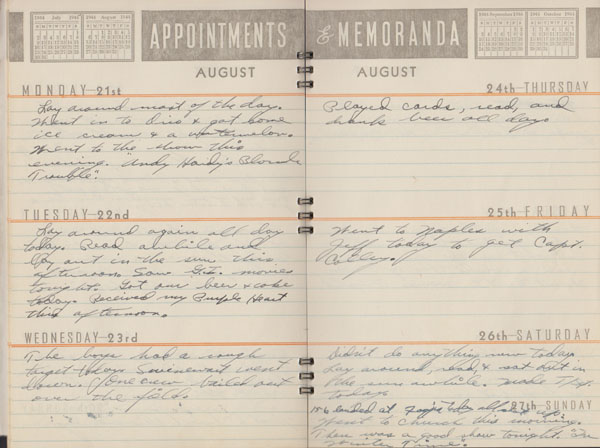 1944 July 1944
1944 August 1944
APPOINTMENTS & MEMORANDA
1944 September 1944
1944 October 1944
AUGUST
AUGUST
MONDAY 21st
Lay around most of the day.
Went in to & got some
ice cream & a watermelon.
Went to the show this
evening. "Andy Hardy's Blonde
Trouble".
TUESDAY 22nd
Lay around again all day
today. Read awhile and
lay out in the sun this
afternoon. Saw G.I. movies
tonight. Got our beer & coke
today. Received my Purple Heart
this afternoon.
WEDNESDAY 23rd
The boys had a rough
target today. Seven went
down. One crew bailed out
over the field.
24th THURSDAY
Played cards, read, and
drank beer all day.
25th FRIDAY
Went to Naples with
Jeff today to get Capt.
26th SATURDAY
Didn't do anything new today.
Lay around, read, & sat out in
the sun awhile. Made
today.
27th SUNDAY
landed at
Went to church this morning.
There was a good show tonight.